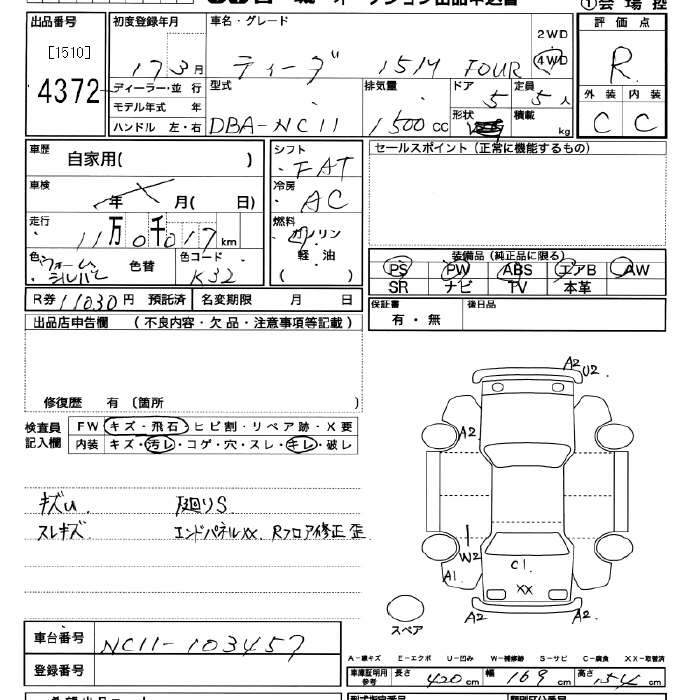 ①会場控
出品番号
[1510]
4372
初度登録年月
17 3月
車名・グレード
ティーダ 15M FOUR
2WD
4WD
評価点
R
ディーラー・並行
モデル年式 年
ハンドル 左・右
型式
DBA-NC11
排気量
1500cc
ドア
5
定員
5人
形状
積載
kg
外装 内装
C C
車歴
自家用( )
シフト
FAT
セールスポイント(正常に機能するもの)
車検
年 月( 日)
冷房
AC
走行
11万0千017km
燃料
ガソリン
軽油
( )
色
ウォームシルバー
色替
色コード
K32
装備品(純正品に限る)
PS PW ABS エアB AW
SR ナビ TV 本革
R券 11030円 預託済
名変期限 月 日
保証書
有・無
後日品
出品店申告欄 (不良内容・欠品・注意事項等記載)
修復歴 有 〔箇所
検査員
記入欄
FW キズ・飛石・ヒビ割・リペア跡・X要
内装 キズ・汚レ・コゲ・穴・スレ・キレ・破レ
キズu. 下廻りS
スレキズ エンドパネルXX. Rフロア修正歪
A2 U2
A2
W2
A1
C1
XX
A2
A2
A2
スペア
車台番号 NC11-103457
登録番号
A-線キズ E-エクボ U-凹み W-補修跡 S-サビ C-腐食 XX-取替済
車庫証明用
参考
長さ 420cm 幅 169cm 高さ 154cm